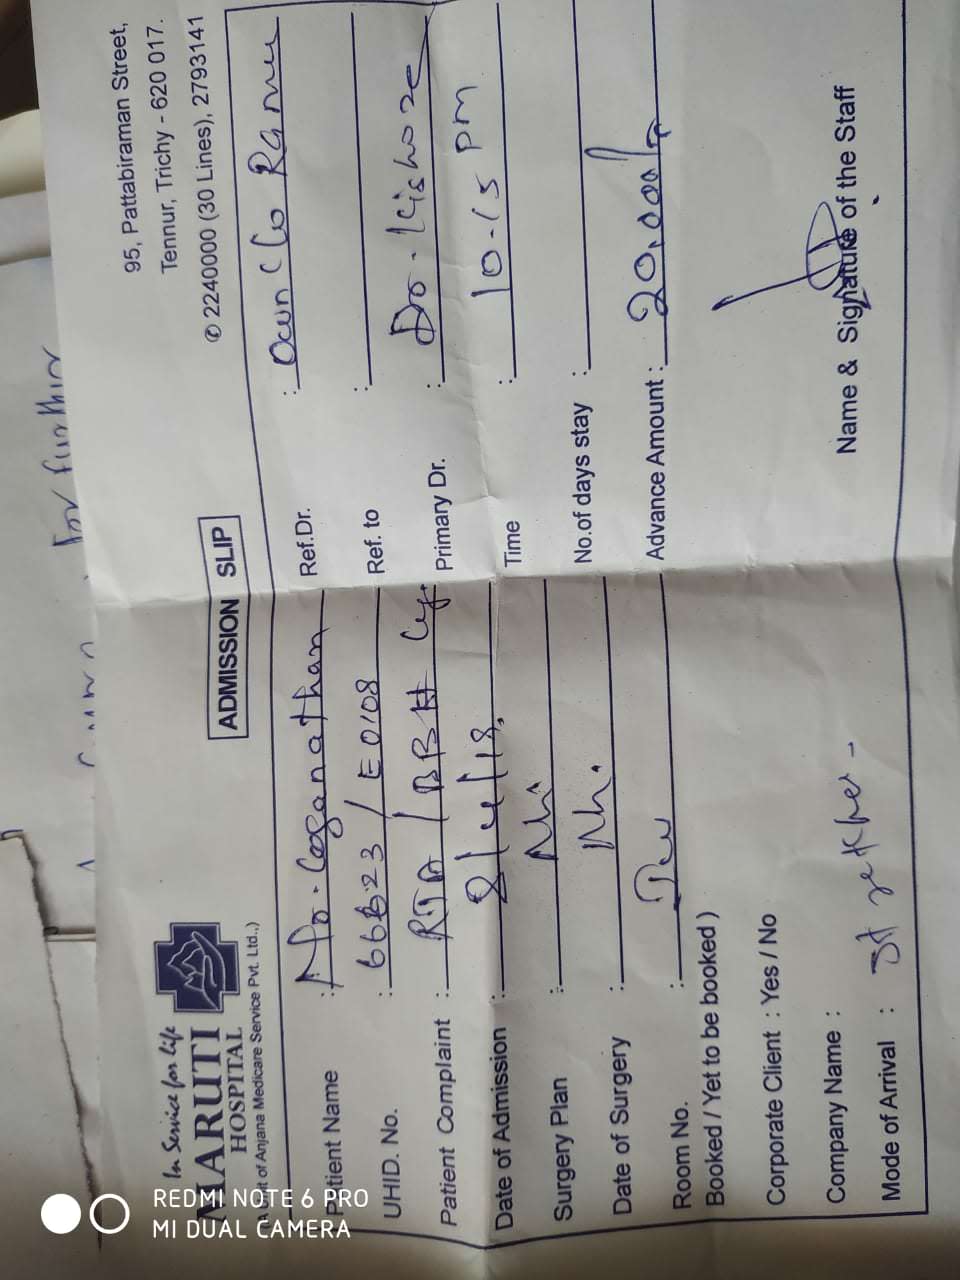 for further
In Service for life
MARUTI
HOSPITAL
nit of Anjana Medicare Service Pvt. Ltd.,)
95, Pattabiraman Street,
Tennur, Trichy - 620 017.
✆ 2240000 (30 Lines), 2793141
ADMISSION SLIP
Patient Name : Loganathan
Ref.Dr. : Own C/o
UHID. No. : 66623 / E0108
Ref. to :
Patient Complaint : RTA /
Primary Dr. : Dr. Kishore
Date of Admission : 8/4/18.
Time : 10.15 PM
Surgery Plan : Nil.
No.of days stay :
Date of Surgery : Nil.
Advance Amount : 20,000/-
Room No. :
Booked / Yet to be booked )
Corporate Client : Yes / No
Company Name :
Mode of Arrival :
Name & Signature of the Staff
REDMI NOTE 6 PRO
MI DUAL CAMERA